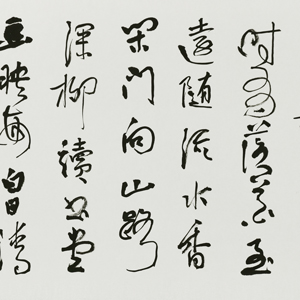 时有落花至
遠随流水香
閑门向山路
深柳讀书堂
幽映每白日清